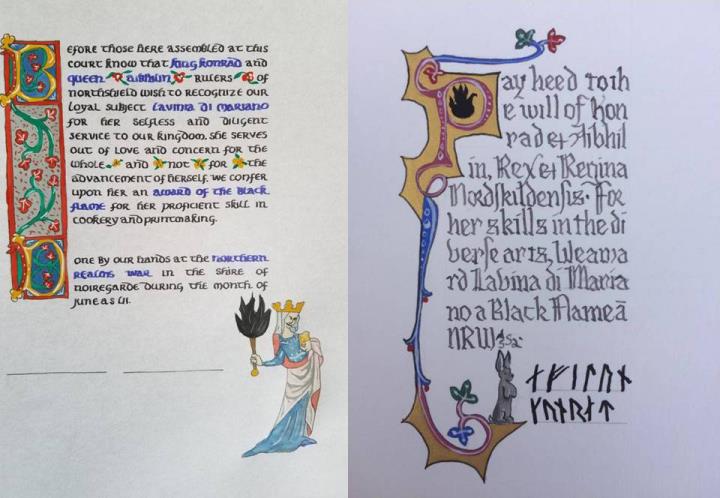 Before those here assembled at this
court know that King Konrad and
Queen Aibhilin rulers of
Northshield wish to recognize our
loyal subject Lavina di Mariano
for her selfless and diligent
service to our kingdom. She serves
out of love and concern for the
whole and not for the
advancement of herself. We confer
upon her an award of the Black
Flame for her proficient skill in
cookery and printmaking.
Done by our hands at the Northern
Realms War in the Shire of
Noiregarde during the month of
June AS LII.
Pay heed to th
e will of Kon
rad et Aibhil
in, Rex et Regina
Nordskildensis. For
her skills in the di
verse arts, We awa
rd Lavina di Maria
no a Black Flame ā
NRW
ᛅᚠᛁᛚᚢᚾ
ᚴᚢᚾᚱᛅᛏ